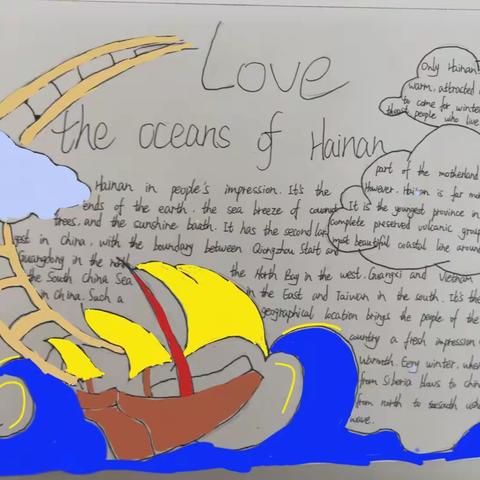 Love
the oceans of Hainan
Only Hainan
warm, attracted
to come for winter
people who live
Hainan in people's impression. It's the
ends of the earth, the sea breeze of
trees, and the sunshine bath. It has the second lar
gest in China, with the boundary between Qiongzhou Strait and
Guangdong in the north
the South China Sea
in China. Such a
part of the motherland
However, Hainan is far
It is the youngest province in
complete preserved volcanic group
most beautiful coastal line around
the North Bay in the west, Guangxi and Vietnam
in the East and Taiwan in the south. It's the
geographical location brings the people of the
country a fresh impression
warmth. Every winter, when
from Siberia blows to china
from north to south
wave.